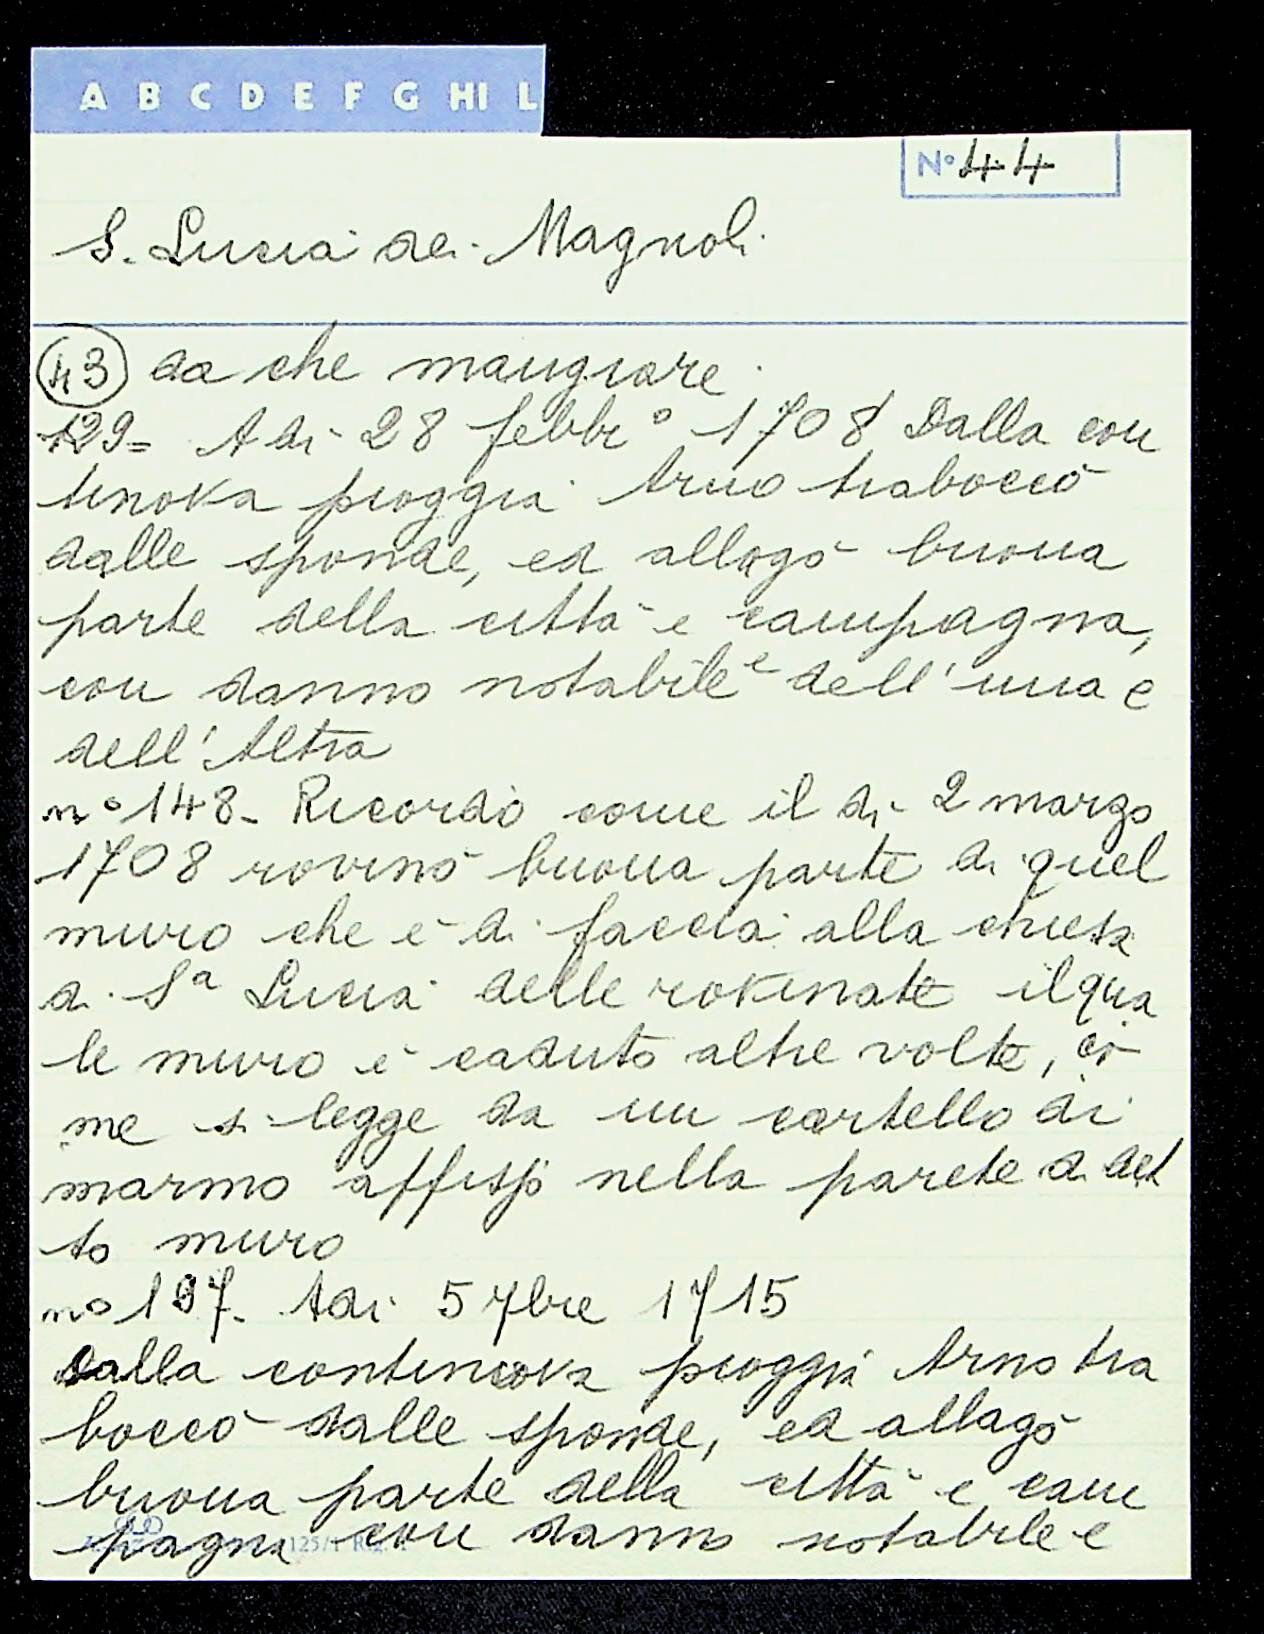 A B C D E F G HI L
N° 44
S. Lucia dei Magnoli
43 da che mangiare
129= Adì 28 febbr° 1708 Dalla con
tinova pioggia Arno traboccò
dalle sponde, ed allagò buona
parte della città e campagna,
con danno notabile e dell'una e
dell'Altra
n° 148- Ricordo come il dì 2 marzo
1708 rovinò buona parte di quel
muro che è di faccia alla chiesa
di Sa Lucia delle rovinate il qua
le muro è caduto altre volte, co
me si legge da un cartello di
marmo affisso nella parete di det
to muro
n° 197- Adi 5 7bre 1715
Dalla continova pioggia Arno tra
boccò dalle sponde, ed allagò
buona parte della città e cam
pagna con danno notabile e